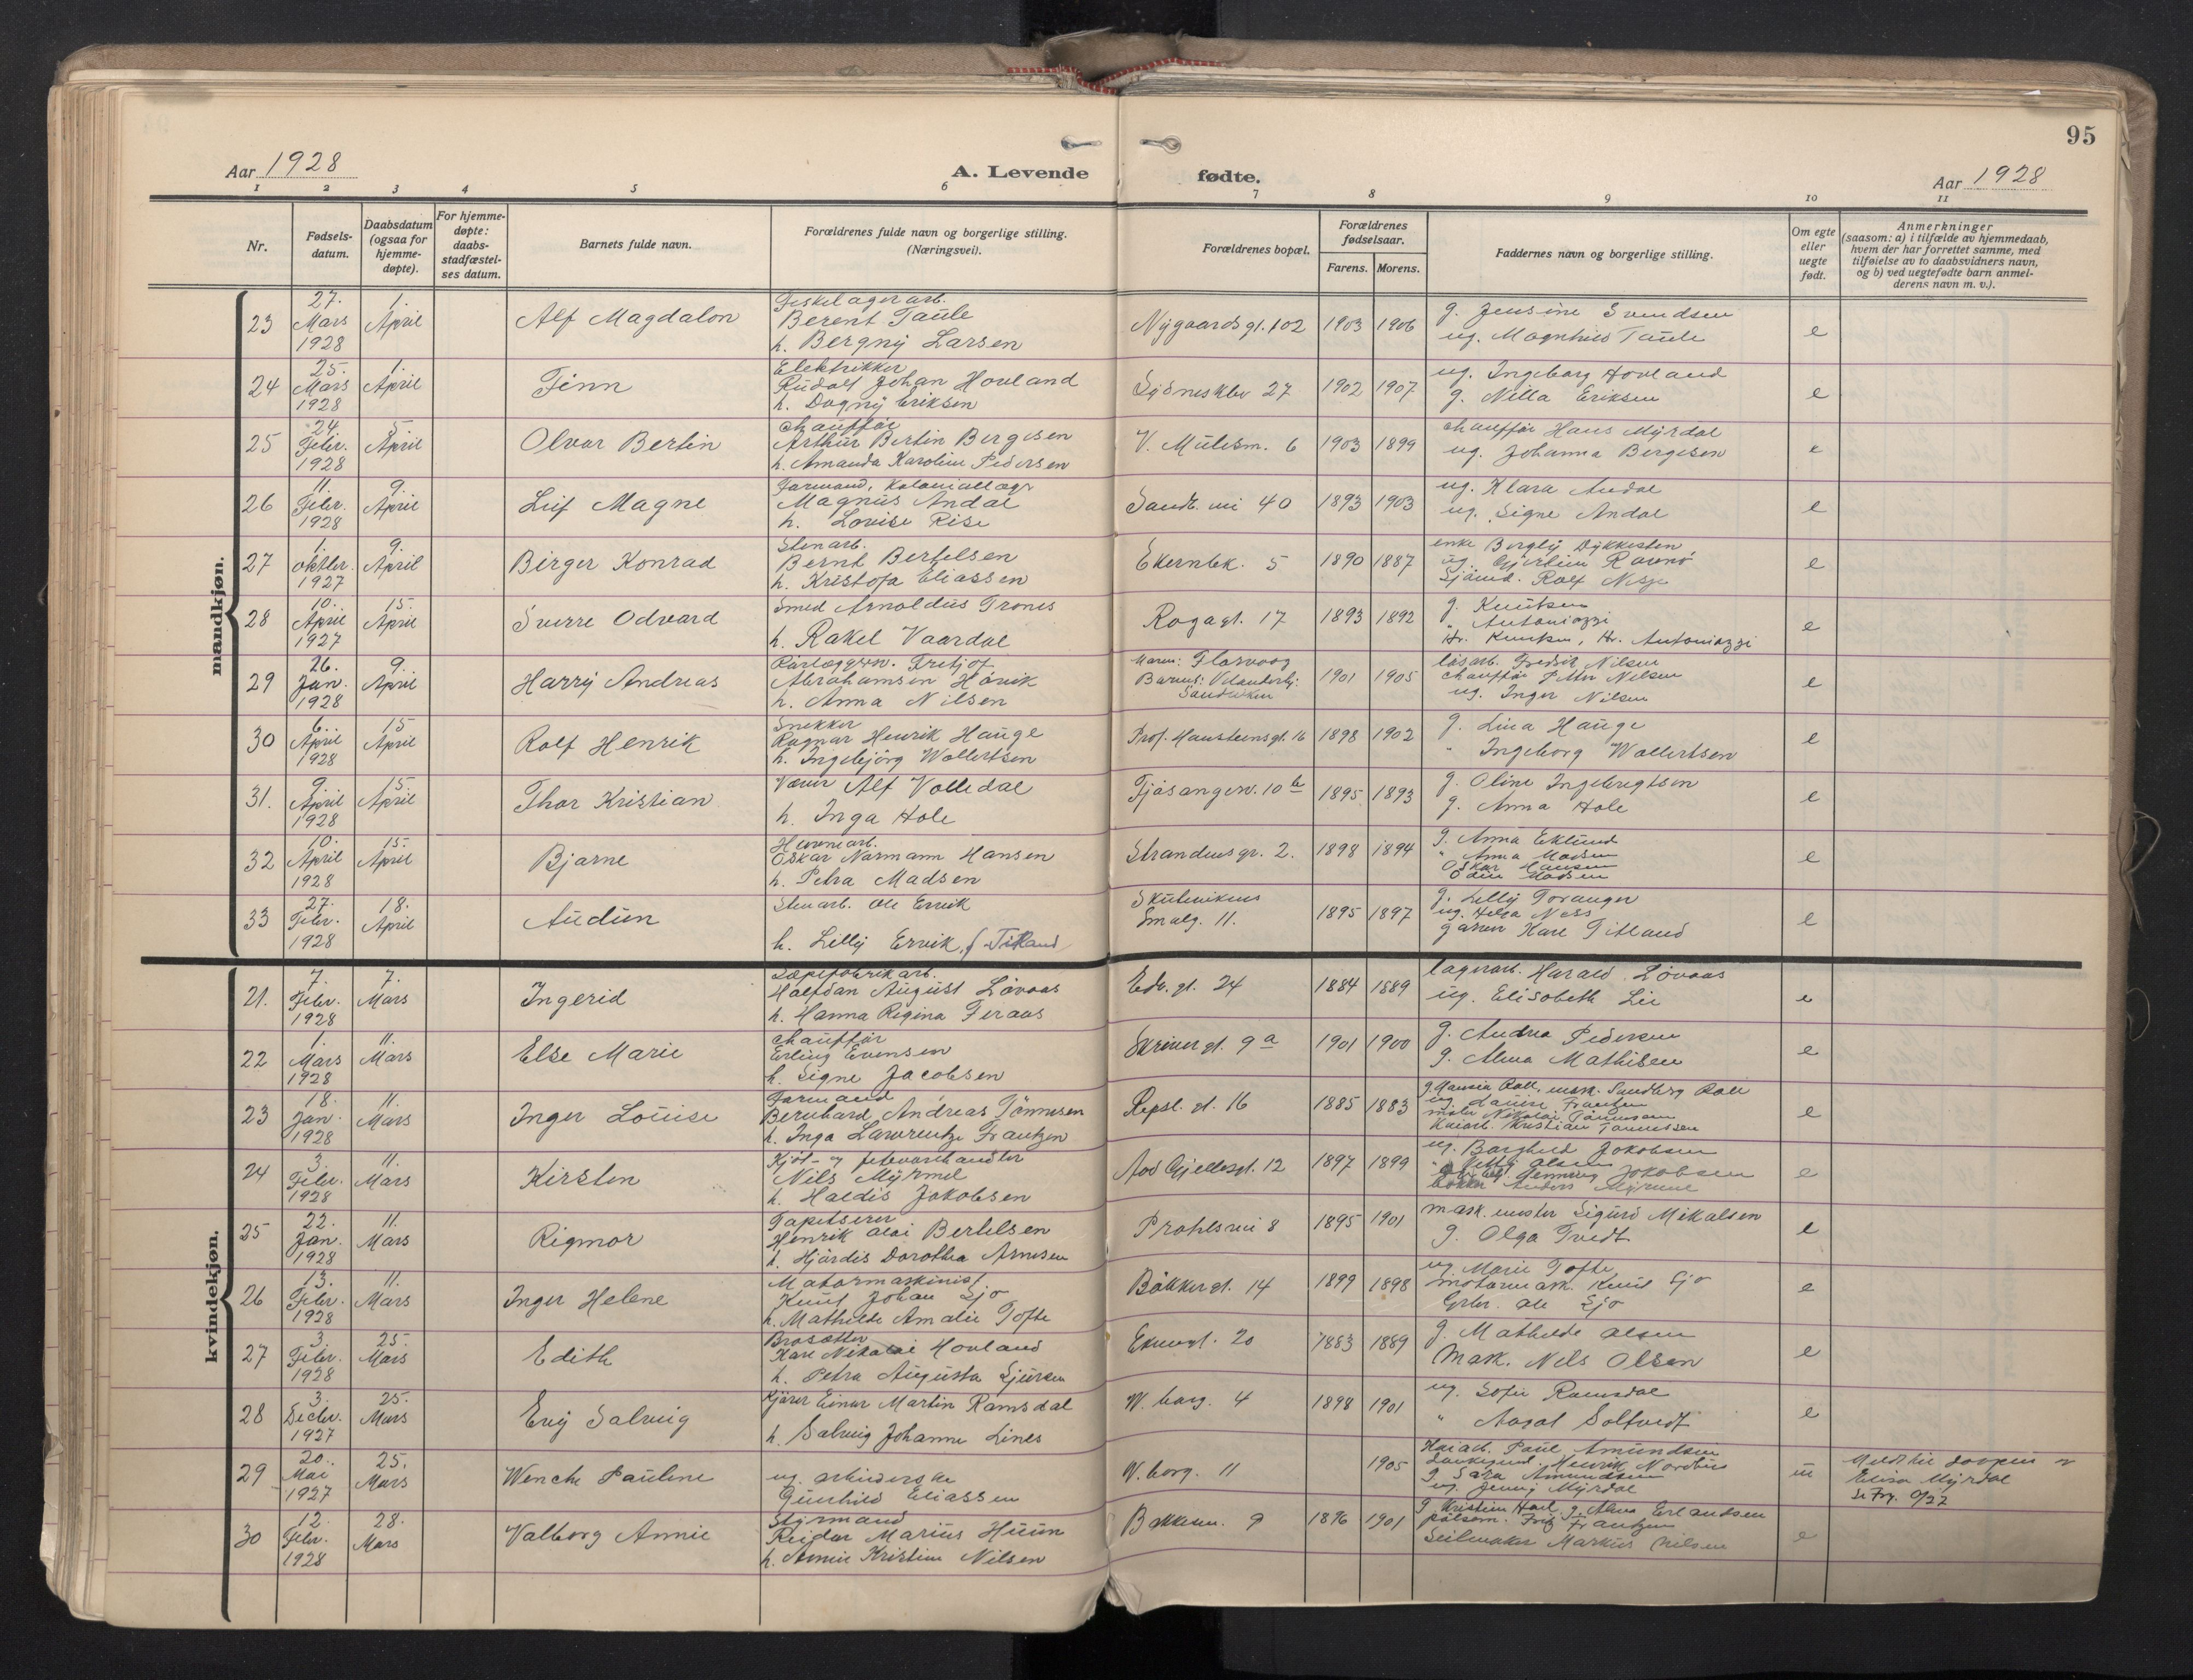 95
Aar 1928
A. Levende fødte.
Aar 1928
1 2 3 4 5 6 7 8 9 10 11
Nr.
Fødselsdatum.
Daabsdatum (ogsaa for hjemmedøpte).
For hjemmedøpte: daabsstadfæstelses datum.
Barnets fulde navn.
Forældrenes fulde navn og borgerlige stilling. (Næringsvei).
Forældrenes bopæl.
Forældrenes fødselsaar.
Farens. Morens.
Faddernes navn og borgerlige stilling.
Om egte eller uegte født.
Anmerkninger
(saasom: a) i tilfælde av hjemmedaab,
hvem der har forrettet samme, med
tilføielse av to daabsvidners navn,
og b) ved uegtefødte barn anmelderens navn m. v.).
mandkjøn.
23 27. Mars 1928 1. April Alf Magdalon Berent Taule h. Bergny Larsen Nygaardsgt. 102 1903 1906 g. Jensine Svendsen ug. Magnhild Taule e
24 25. Mars 1928 1. April Finn Elektrikker Rudolf Johan Hovland h. Dagny Eriksen Sydnesklev 27 1902 1907 ug. Ingeborg Hovland g. Nilla Eriksen e
25 24. Febr. 1928 5. April Olvar Bertin chauffør Arthur Bertin Bergesen h. Amanda Karoline Pedersen V. Mulesm. 6 1903 1899 chauffør Hans Myrdal ug. Johanna Bergesen e
26 11. Febr. 1928 9. April Leif Magne Formand, Magnus Andal h. Lovise Rise Sandv. vei 40 1893 1903 ug. Klara Andal ug. Signe Andal e
27 1. oktbr. 1927 9. April Birger Konrad Stenarb. Bernt Bertelsen h. Kristofa Eliassen Ekernbk. 5 1890 1887 enke Bergly ug. Sjømd. Rolf e
28 10. April 1927 15. April Sverre Odvard Smed Arnoldus Trones h. Rakel Vaardal Rogagt. 17 1893 1892 g. Knutsen " Antoniazzi Hr. Knutsen, Hr. Antoniazzi e
29 26. Jan. 1928 9. April Harry Andreas Fritjof Abrahamsen Hovik h. Anna Nilsen Florvaag Sandviken 1901 1905 Fredrik Nilsen chauffør Petter Nilsen ug. Inger Nilsen e
30 6. April 1928 15 April Rolf Henrik Snekker Ragnar Henrik Hauge h. Ingebjørg Wallertsen Prof. Hansteensgt. 16 1898 1902 g. Lina Hauge " Ingeborg Wallertsen e
31. 9 April 1928 15 April Thor Kristian Alf Valledal h. Inga Hole Fjøsangerv. 10 b 1895 1893 g. Oline Ingebregtsen g. Anna Hole e
32 10. April 1928 15. April Bjarne Oskar Normann Hansen h. Petra Madsen Strandensgr. 2. 1898 1894 g. Anna Eklund " Anna Madsen Oskar Hansen Odin Madsen e
33 27. Febr. 1928 18. April Audun Stenarb. Ole Ervik h. Lilly Ervik, f. Titland Skutevikens Smalg. 11. 1895 1897 g. Lilly Toranger ug. Helga Ness Karl Titland e
kvindekjøn.
21. 7. Febr. 1928 7. Mars Ingerid Sæpefabrikarb. Halfdan August Løvaas h. Hanna Regina Feraas Edv. gt. 24 1884 1889 lagerarb. Harald Løvaas ug. Elisabeth Lie e
22 1. Mars 1928 11. Mars Else Marie chauffør Erling Evensen h. Signe Jacobsen Skivergt. 9 a 1901 1900 g. Andrea Pedersen g. Alma Mathisen e
23 18. Jan. 1928 11. Mars Inger Louise Formand Bernhard Andreas Tönnesen h. Inga Lawrentze Frantzen Repsl. gt. 16 1885 1883 ug. Laura Frantzen Nikolai Tönnesen Kristian Tönnesen e
24 3. Febr. 1928 11. Mars Kirsten Kjøt- og fetevarehandler Nils Myrmel h. Haldis Jakobsen Aad Gjellesgt. 12 1897 1899 ug. Borghild Jakobsen " Netty Olsen Henning Jokobsen Anders Myrmel e
25 22. Jan. 1928 11. Mars Rigmor Tapetserer Henrik Olai Bertelsen h. Hjørdis Dorothea Arnesen Prahlsvei 8 1895 1901 mask. mester Sigurd Mikalsen g. Olga Tvedt e
26 13. Febr. 1928 11. Mars Inger Helene Motormaskinist Knut Johan Sjo h. Mathilde Amalie Tofte Bakkergt. 14 1899 1898 ug. Marie Tofte, motormask. Knut Sjo Ole Sjo e
27 3. Febr. 1928 25. Mars Edith Brosætter Karl Nikolai Hovland h. Petra Augusta Sjursen 20 1883 1889 g. Mathilde Olsen Mask. Nils Olsen e
28 3. Decbr. 1927 25. Mars Evy Solveig Kjører Einar Martin Ramsdal h. Solveig Johanne Lines W. borg. 4 1898 1901 ug. Sofie Ramsdal " Aagot Soltvedt e
29 20. Mai 1927 25. Mars Wenche Pauline ug. arbeiderske Gunhild Eliassen W. borg. 11 1905 Kaiarb. Paul Amundsen Henrik Nordhus g. Sara Amundsen ug. Jenny Myrdal u Meldt til daapen av Elisa Myrdal
30 12. Febr. 1928 28. Mars Valborg Annie Styrmand Reidar Marius Huun h. Annie Kristine Nilsen Bakkesm. 9 1896 1901 g. Alma Erlandsen Fritz Frantzen Seilmaker Markus Nilsen e